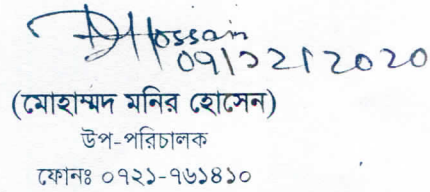 DHossain
09/12/2020
(মোহাম্মদ মনির হোসেন)
উপ-পরিচালক
ফোনঃ ০৭২১-৭৬১৪১০